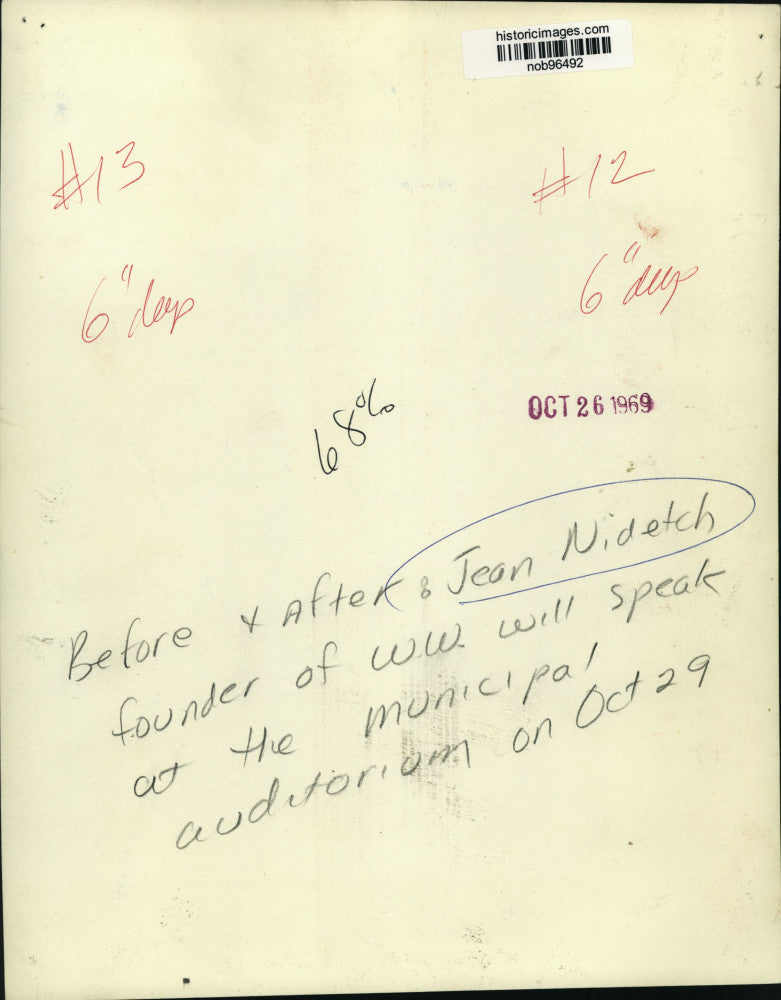 historicimages.com
nob96492
#13
#12
6" deep
6" deep
68%
OCT 26 1969
Before & After: Jean Nidetch
founder of WW. will speak
at the municipal
auditorium on Oct 29